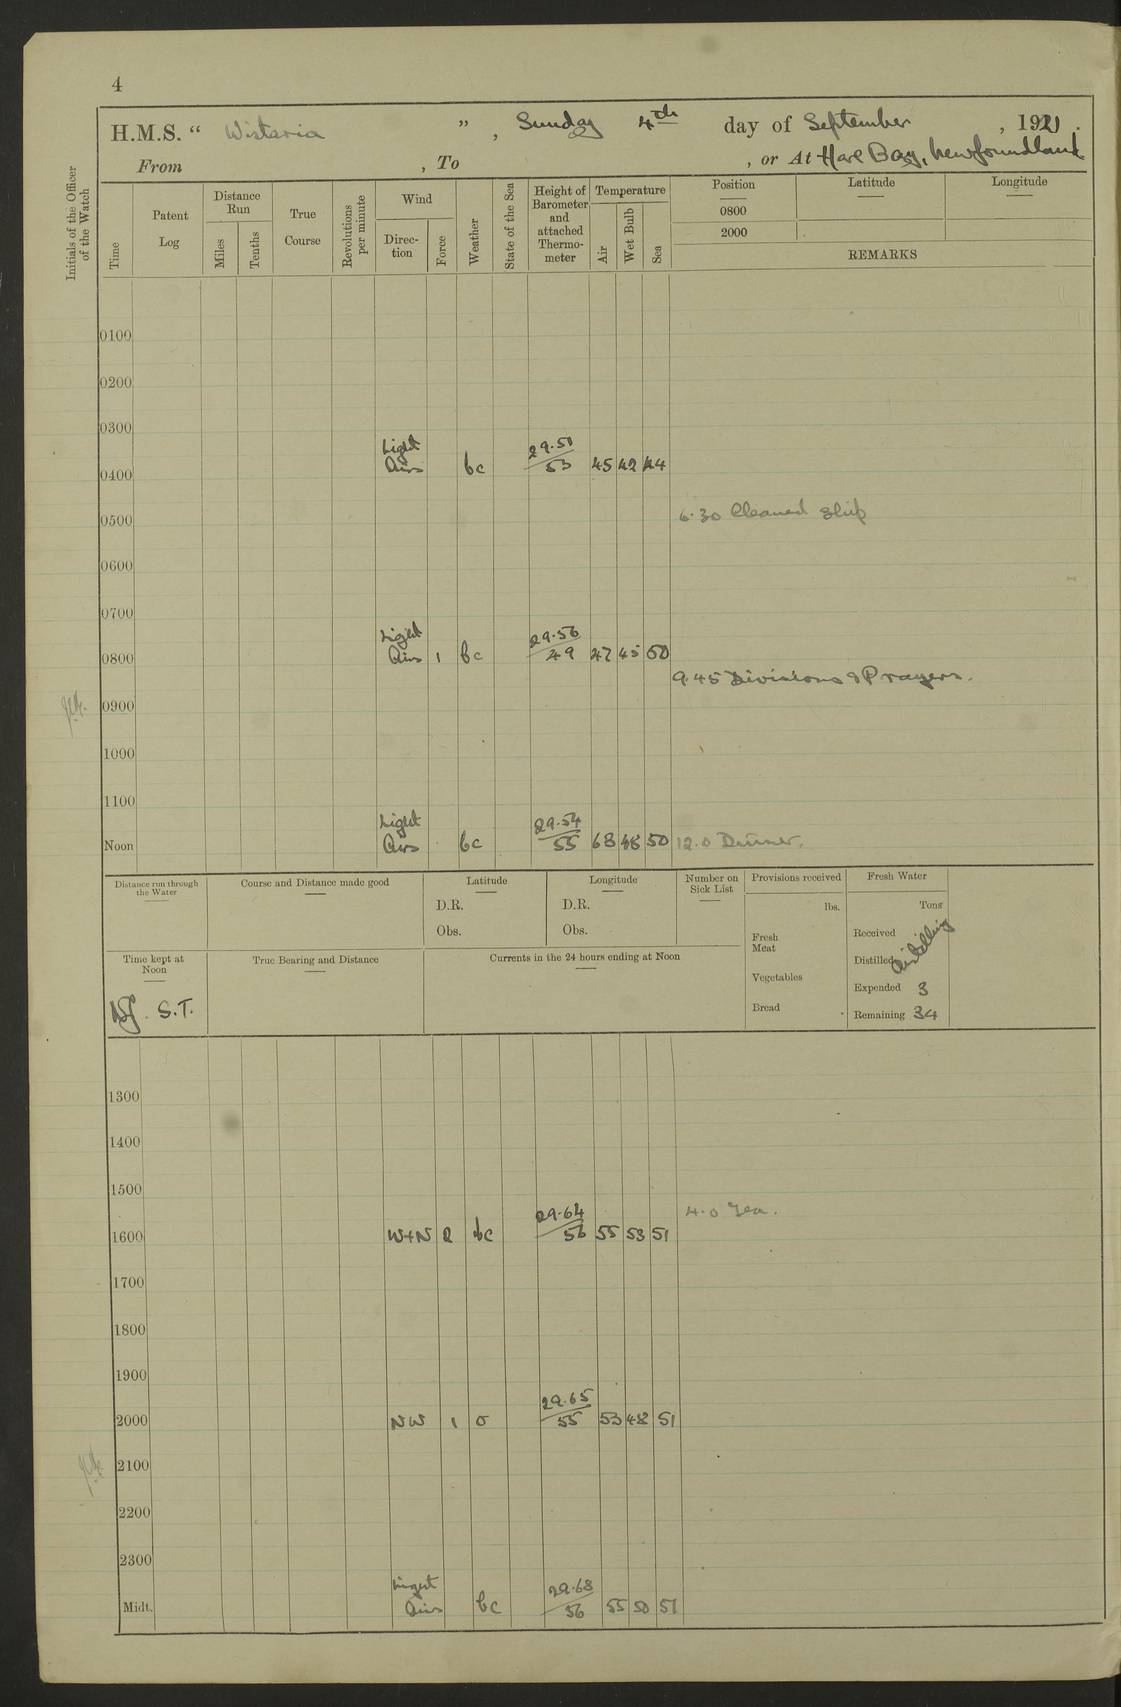 4
H.M.S. “ Wistaria ” , Sunday 4th day of September , 1921 .
From , To , or At Hare Bay, Newfoundland
Initials of the Officer of the Watch
Time
Patent Log
Distance Run
Miles
Tenths
True Course
Revolutions per minute
Wind
Direc-tion
Force
Weather
State of the Sea
Height of Barometer and attached Thermo-meter
Temperature
Air
Wet Bulb
Sea
Position Latitude Longitude
0800
2000
REMARKS
0100
0200
0300
Light 29.51
0400 Airs bc 53 45 42 44
0500 6.30 Cleaned Ship
0600
0700
Light 29.56
0800 Airs 1 bc 49 47 45 50
9.45 Divisions & Prayers.
0900
1000
1100
Light 29.54
Noon Airs bc 55 63 48 50 12.0 Dinner.
Distance run through the Water
Course and Distance made good
Latitude
D.R.
Obs.
Longitude
D.R.
Obs.
Number on Sick List
Provisions received
lbs.
Fresh Meat
Vegetables
Bread
Fresh Water
Tons
Received
Distilled Distilling
Expended 3
Remaining 34
Time kept at Noon
S.T.
True Bearing and Distance
Currents in the 24 hours ending at Noon
1300
1400
1500
29.64 4.0 Tea.
1600 W+N 2 bc 56 55 53 51
1700
1800
1900
29.65
2000 NW 1 o 55 53 48 51
2100
2200
2300
Light 29.68
Midt. Airs bc 56 55 50 51